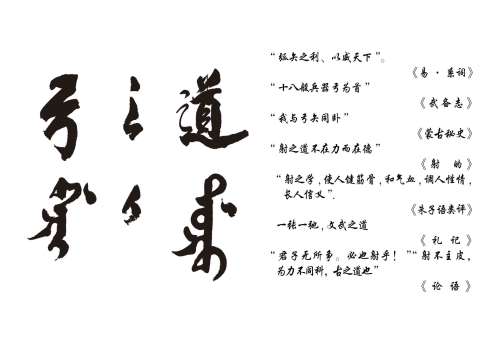 弓之道
“弧矢之利、以威天下”。
《易·系词》
“十八般兵器弓为首”
《武备志》
“我与弓矢同卧”
《蒙古秘史》
“射之道不在力而在德”
《射 的》
“射之学,使人健筋骨,和气血,调人性情,
长人信义”.
《朱子语类评》
一张一驰,文武之道
《礼 记》
“君子无所事。必也射乎!”“射不主皮,
为力不同科,古之道也”
《论 语》